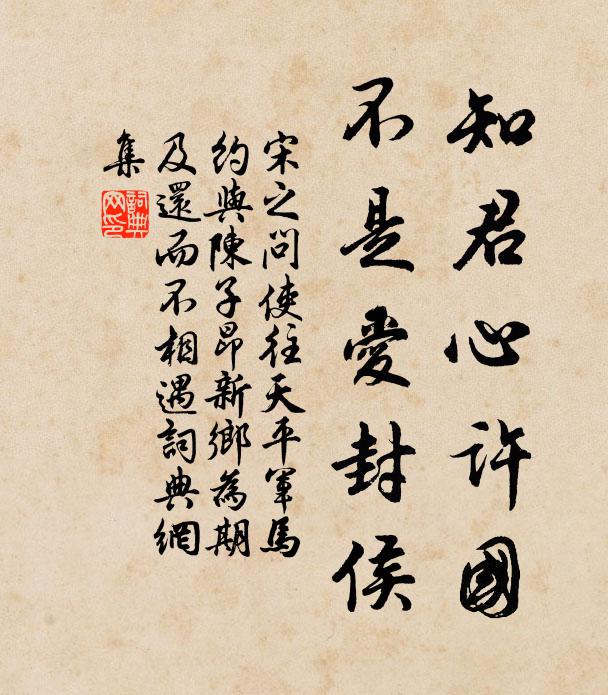 知君心许國
不是愛封侯
宋之问使往天平軍馬
约與陳子昂新鄉為期
及還而不相遇詞典網
集
詞典
网印